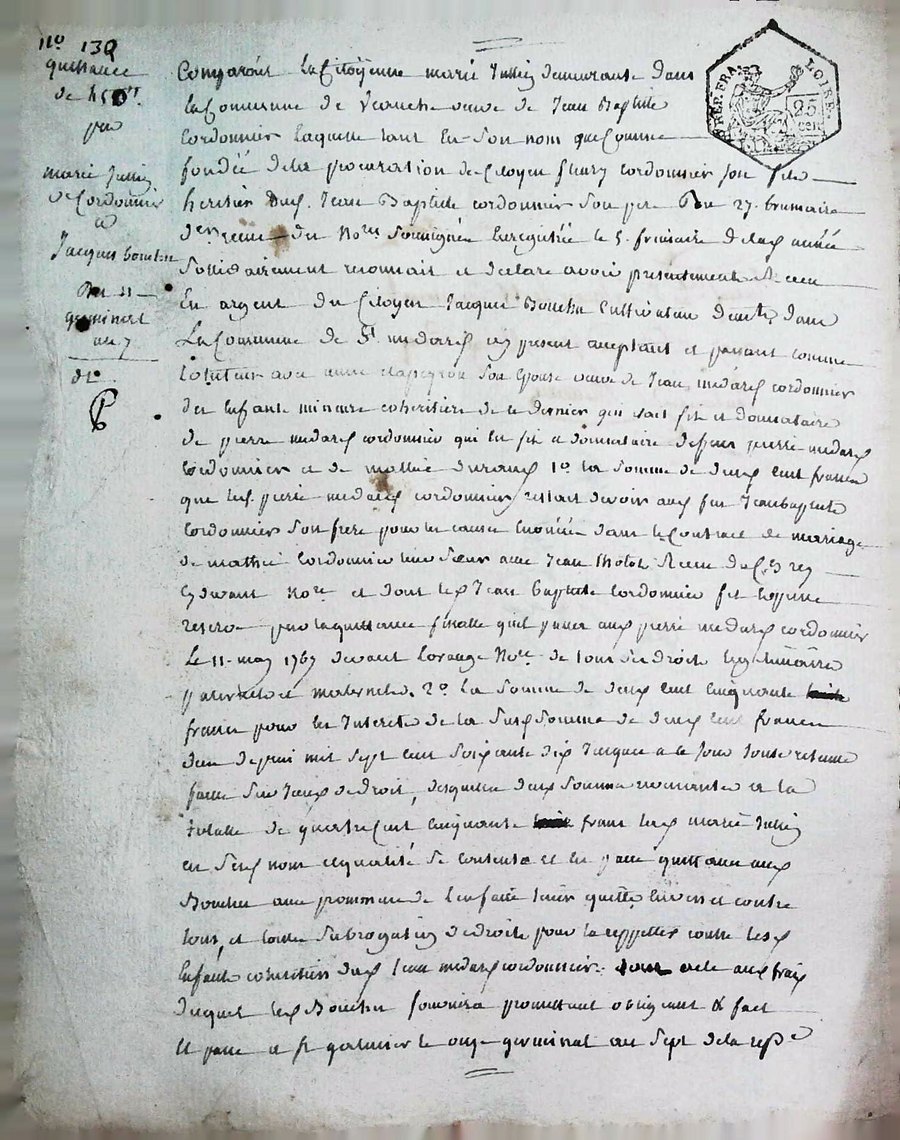 No 139
quittance
de 450 ##
par
marie Jullien
ve Cordonnier
a
Jacques bouchu
Du 11
germinal
an 7
REP. FRA.
LOIRE.
25
cen
Comparüt la Citöyenne marie Jullien demeurante dans
la Commune de veuve de Jean Baptiste
Cordonnier laquelle tant en son nom que Comme
fondée de la procuration de Citoyen fleury cordonnier son fils
heritier dud. Jean Baptiste cordonnier son pere Du 27. brumaire
du Nore Soussigné Enregistrée le 5. frimaire de lad année
Solidairement reconnait et declare avoir presentement Receu
En argent du Citoyen Jacques Bouchu Cultivateur demt dans
La Commune de St. medard icy present acceptant et payant comme
Cotuteur avec anne son Epouse veuve de Jean medard cordonnier
des Enfants mineurs coheritiers de ce dernier qui etait fils et donnataire
de pierre medard cordonnier qui en fils et donnataire de feu pierre medard
Cordonnier et de durand 1o. la Somme de deux cent francs
que led. pierre medard cordonnier restait devoir aud feu Jean baptiste
Cordonnier Son frere pour les causes Enoncées dans le Contract de mariage
de Cordonnier leur Sœur avec Jean
Cydevant Nore et dont led Jean baptiste Cordonnier fit Expresse
reserve par la quittance finalle quil passa aud pierre medard cordonnier
Le 11. may 1767 devant Nore. de tous ses droits legitimaires
paternels et maternels. 2o. la Somme de deux cent cinquante
francs pour les Interets de la Susd Somme de deux cent francs
deue depuis mil Sept cent Soixante dix Jusques a ce Jour toute retenue
faitte Sur Iceux de droit, desquelles deux Sommes revenantes en la
totalle de quatre Cent cinquante francs lad marie Jullien
en Sesd nom et qualité Se Contente et en passe quittance aud
Bouchu avec promesse de l'en faire tenir quitte Envers et contre
tous, et toutte Subrogation de droits pour la repetter contre lesd
Enfants coheritiers dud Jean medard cordonnier. dont acte aux frais
duquel led Bouchu fournira promettant obligeant &c fait
Et passé a St galmier le onze germinal an Sept de la repe